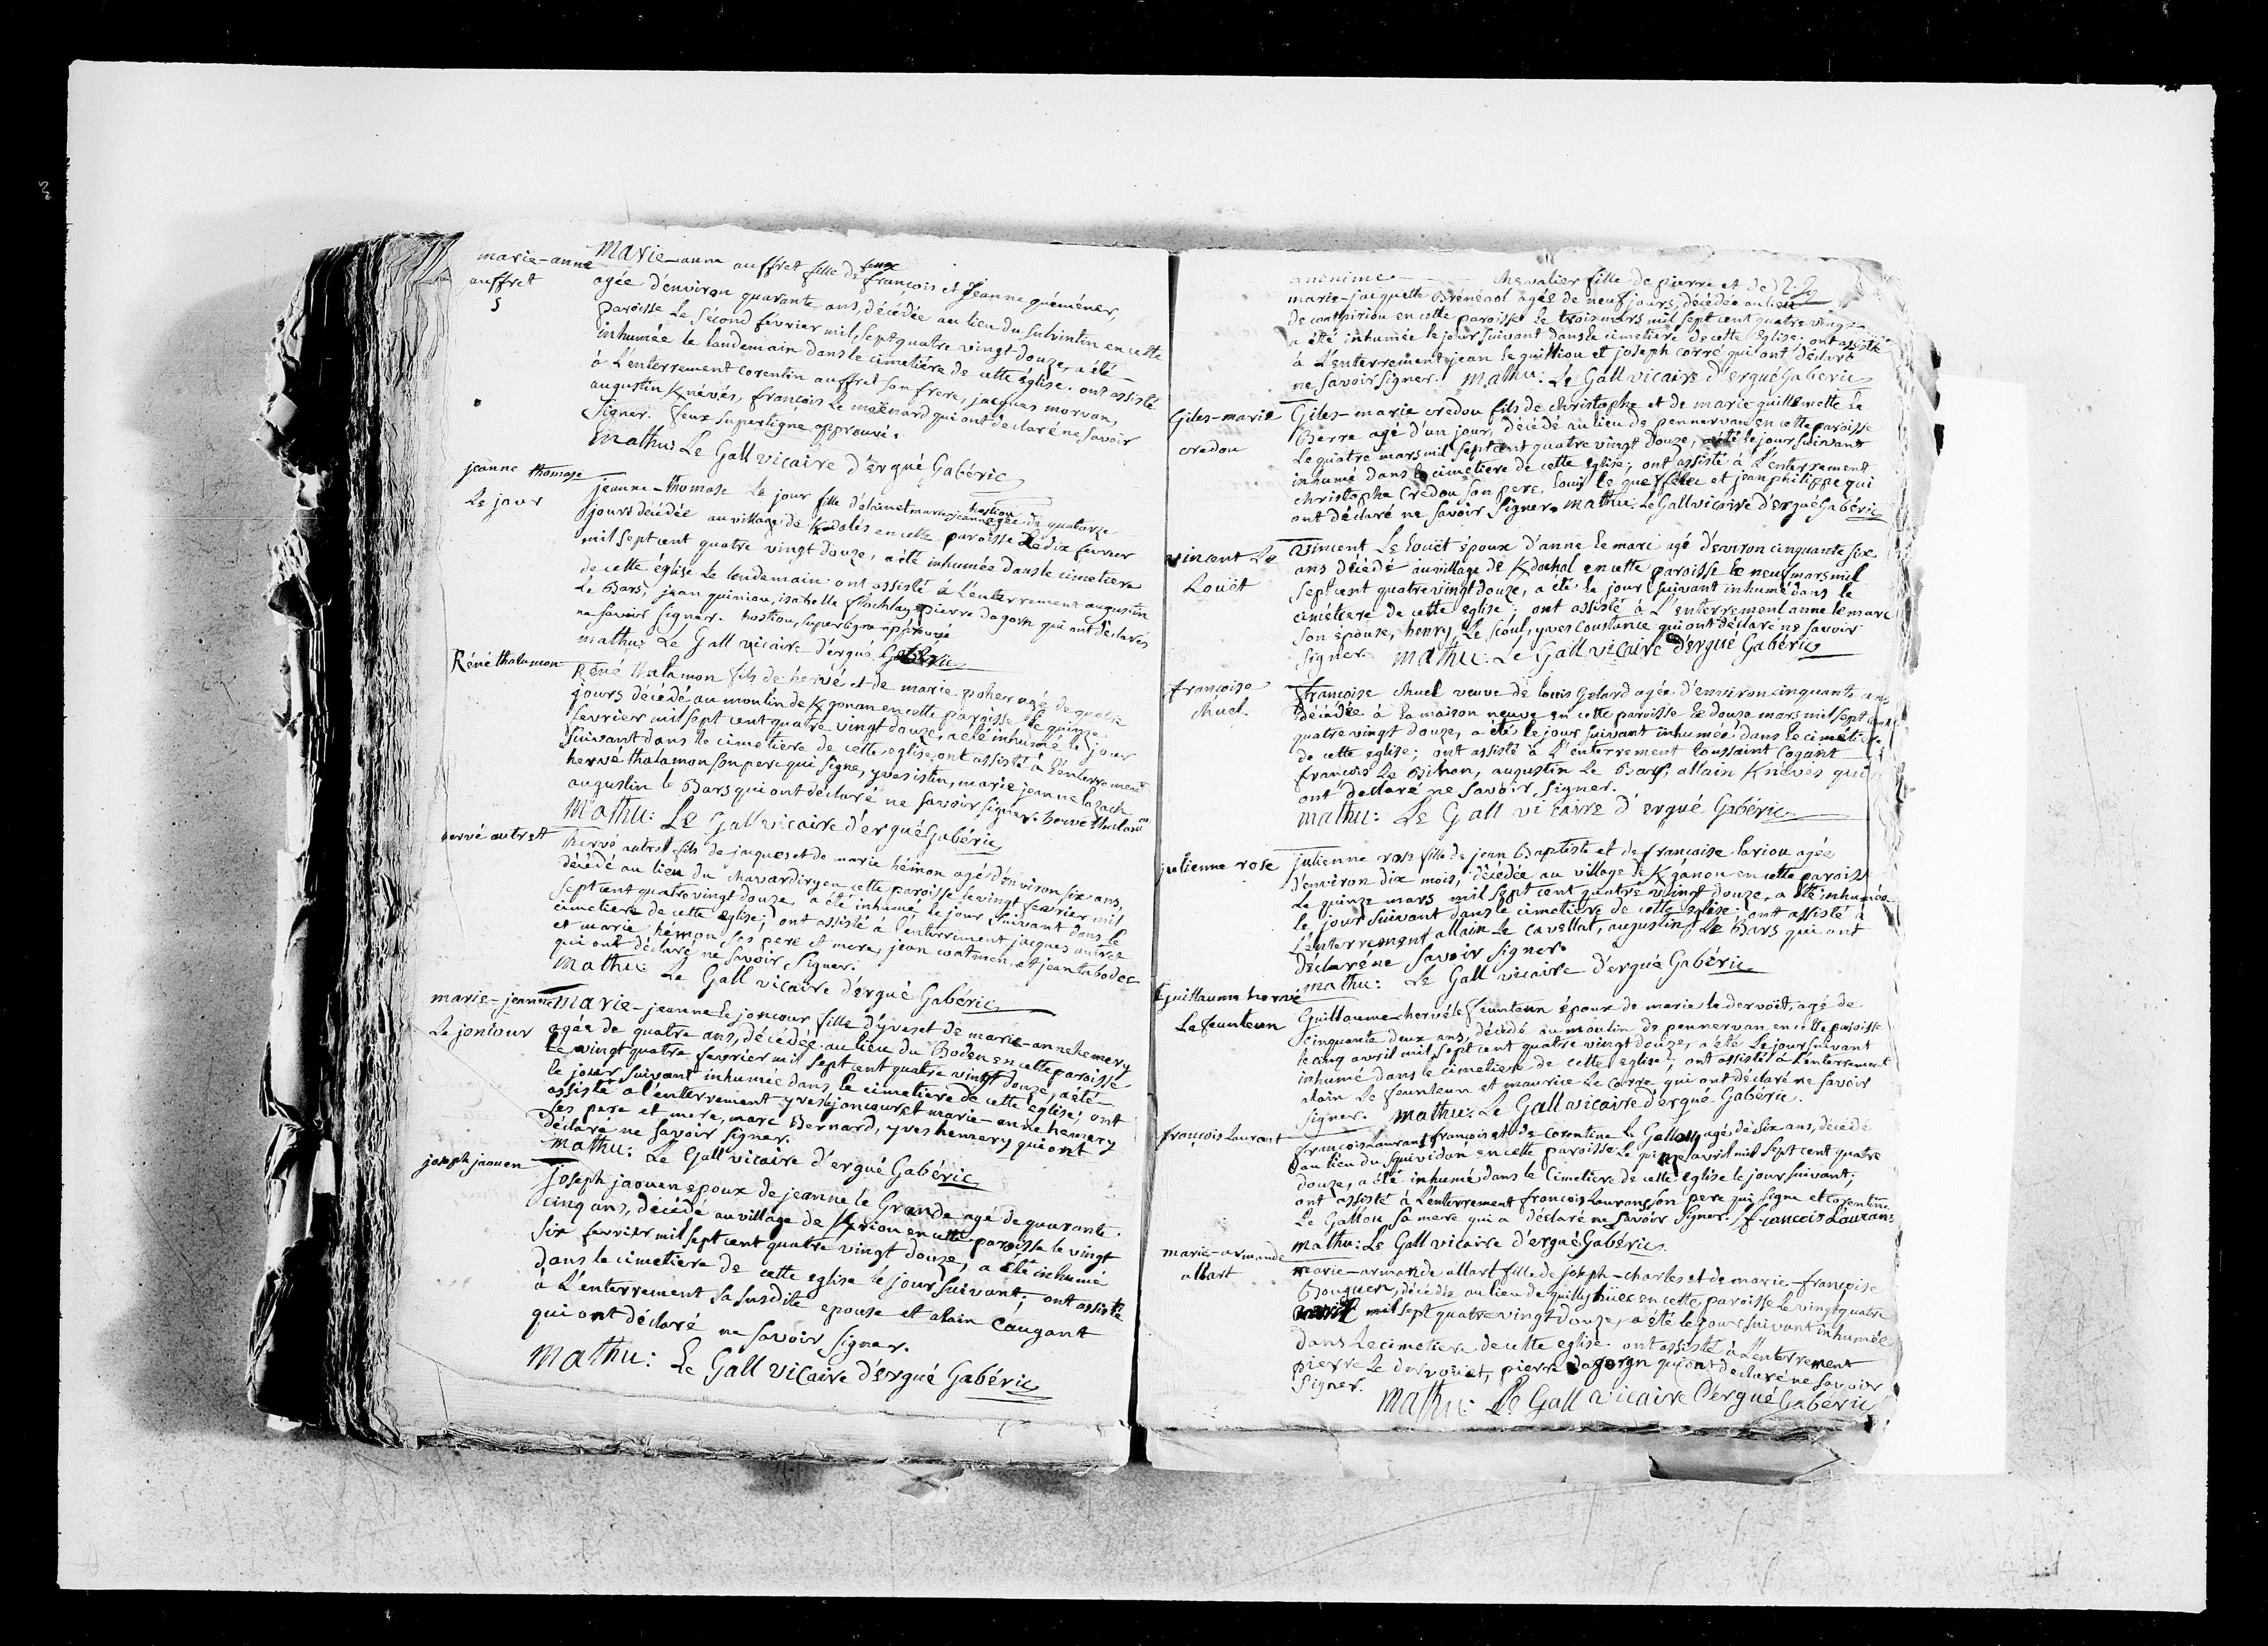 marie-anne
auffret
5
Marie-anne auffret fille de feux françois et Jeanne quéméner,
agée d'environ quarante ans, décédée au lieu du sulvintin en cette
paroisse le second février mil, sept quatre vingt-douze, a été
inhumée le landemain dans le cimetiére de cette église. ont assisté
à l'enterrement corentin auffret son frere, jacques morvan,
augustin Knévés, françois le moënard qui ont déclaré ne savoir
signer. feux superligne approuvé.
Mathu: Le Gall vicaire d'ergué Gabéric
jeanne thomase
Le jour
jeanne-thomase Le jour fille d'alain et marie jeanne hostiou agée de quatorze
jours décédée au village de Kdalés en cette paroisse le dix fevrier
mil sept cent quatre vingt douze, a été inhumée dans le cimetiere
de cette église le lendemain. ont assisté à l'enterrement augustin
Le Bars, jean quiniou, isabelle flochlay, pierre dagorn qui ont déclarés
ne savoir signer. hostiou, superligne approuvé
mathu: Le Gall vicaire d'ergué Gabéric
Réné thalamon
Réné thalamon fils de hervé et de marie poher agé de quatre
jours décédé au moulin de Kgonan en cette paroisse le quinze
fevrier mil sept cent quatre vingt douze, a été inhumé le jour
suivant dans le cimetiere de cette eglise, ont assisté à l'enterrement
hervé thalamon son pere qui signe, yves istin, marie jeanne lozach
augustin le Bars qui ont déclaré ne savoir signer. hervé thalamon
Mathu: Le Gall vicaire d'ergué Gabéric
hervé autret
hervé autret fils de jacques et de marie hémon agé d'environ six ans,
décédé au lieu du chavardiry en cette paroisse le vingt fevrier mil
sept cent quatre vingt douze, a été inhumé le jour suivant dans le
cimetiere de cette eglise; ont assisté à l'enterrement jacques autret
et marie hemon ses pere et mere, jean coatmen, et jean tabodec
qui ont déclaré ne savoir signer.
Mathu: Le Gall vicaire d'ergué Gabéric
marie-jeanne
Le joncour
Marie-jeanne le joncour fille d'yves et de marie-anne hemery
agée de quatre ans, décédée au lieu du Boden en cette paroisse
le vingt quatre fevrier mil sept cent quatre vingt douze, a été
le jour suivant inhumée dans le cimetiere de cette eglise, ont
assisté à l'enterrement yves le joncour et marie-anne hemery
ses pere et mere, marc Bernard, yves hemery qui ont
déclaré ne savoir signer.
Mathu: Le Gall vicaire d'ergué Gabéric
joseph jaouen
Joseph jaouen epoux de jeanne le Grande agé de quarante-
cinq ans, décédé au village de Kriou en cette paroisse le vingt
six fevrier mil sept cent quatre vingt douze, a été inhumé
dans le cimetiere de cette eglise le jour suivant; ont assisté
à L'enterrement sa susdite epouse et alain Caugant
qui ont déclaré ne savoir signer.
Mathu: Le Gall vicaire d'ergué Gabéric
anonime chevalier fille de pierre et de
marie-jacquette Brénéol agée de neuf jours, décédée au lieu
de coatpiriou en cette paroisse le trois mars mil sept cent quatre vingt
a été inhumée le jour suivant dans le cimetiere de cette Eglise; ont assisté
à L'enterrement jean le quilliou et joseph corré qui ont déclaré
ne savoir signer. Mathu: Le Gall vicaire d'ergué Gaberic
Giles-marie
credou
Giles-marie credou fils de christophe et de marie guillemette le
Berre agé d'un jour, décédé au lieu de pennervan en cette paroisse
Le quatre mars mil sept cent quatre vingt douze, a été le jour suivant
inhumé dans le cimetiere de cette eglise; ont assisté à L'enterrement
christophe credou son pere, louis le queffelec et jean philippe qui
ont déclaré ne savoir signer. Mathu: Le Gall vicaire d'ergué Gabéric
vincent Le
Louët
vincent Le louët époux d'anne le marc agé d'environ cinquante six
ans décédé au village de Kdochal en cette paroisse le neuf mars mil
sept cent quatre vingt douze, a été le jour suivant inhumé dans le
cimétiere de cette eglise; ont assisté à L'enterrement anne le marc
son épouse, henry Le scoul, yves Coustance qui ont déclaré ne savoir
signer. Mathu: Le Gall vicaire d'ergué Gabéric
françoise
chuel.
françoise chuel veuve de louis Gélard agée d'environ cinquante ans
décédée à la maison neuve en cette paroisse le douze mars mil sept cent
quatre vingt douze, a été le jour suivant inhumée dans le cimetiere
de cette eglise; ont assisté à L'enterrement toussaint Cogant
françois Le Bihan, augustin Le Bars, allain Knévés qui
ont déclaré ne savoir signer.
Mathu: Le Gall vicaire d'ergué Gabéric
julienne rose
julienne rose fille de jean Baptiste et de françoise lariou agée
d'environ dix mois, décédée au village de Kgánou en cette paroisse
Le quinze mars mil sept cent quatre vingt douze, a été inhumée
le jour suivant dans le cimetiere de cette eglise. ont assisté à
L'enterrement allain Le Cavellat, augustin Le Bars qui ont
déclaré ne savoir signer.
Mathu: Le Gall vicaire d'ergué Gabéric
Guillaume hervé
Le feunteun
Guillaume-hervé le feunteun époux de marie le dervoët, agé de
cinquante deux ans, décédé au moulin de pennervan en cette paroisse
le cinq avril mil sept cent quatre vingt douze, a été le jour suivant
inhumé dans le cimetiere de cette eglise; ont assistés à l'enterrement
alain Le feunteun et maurice Le Corre qui ont déclaré ne savoir
signer. Mathu: Le Gall vicaire d'ergué Gabéric.
françois Laurant
françois Laurant françois et de Corentine Le Gallou agé de six ans, décédé
au lieu du squividan en cette paroisse le quinze avril mil sept cent quatre
douze, a été inhumé dans le Cimetiere de cette eglise le jour suivant;
ont assisté à L'enterrement françois Laurans son pere qui signe et corentine
Le Gallou sa mere qui a déclaré ne savoir signer. francois Laurans
Mathu: Le Gall vicaire d'ergué Gabéric.
marie-armande
allart
marie-armande allart fille de joseph-charles et de marie-françoise
Bouguen, décédée au lieu de quillyhüec en cette paroisse le vingt quatre
avril mil sept quatre vingt douze, a été le jour suivant inhumée
dans le cimetiere de cette eglise. ont assisté à L'enterrement
pierre Le dervouet, pierre dagorn qui ont déclaré ne savoir
signer.
Mathu: Le Gall vicaire d'ergué Gabéric